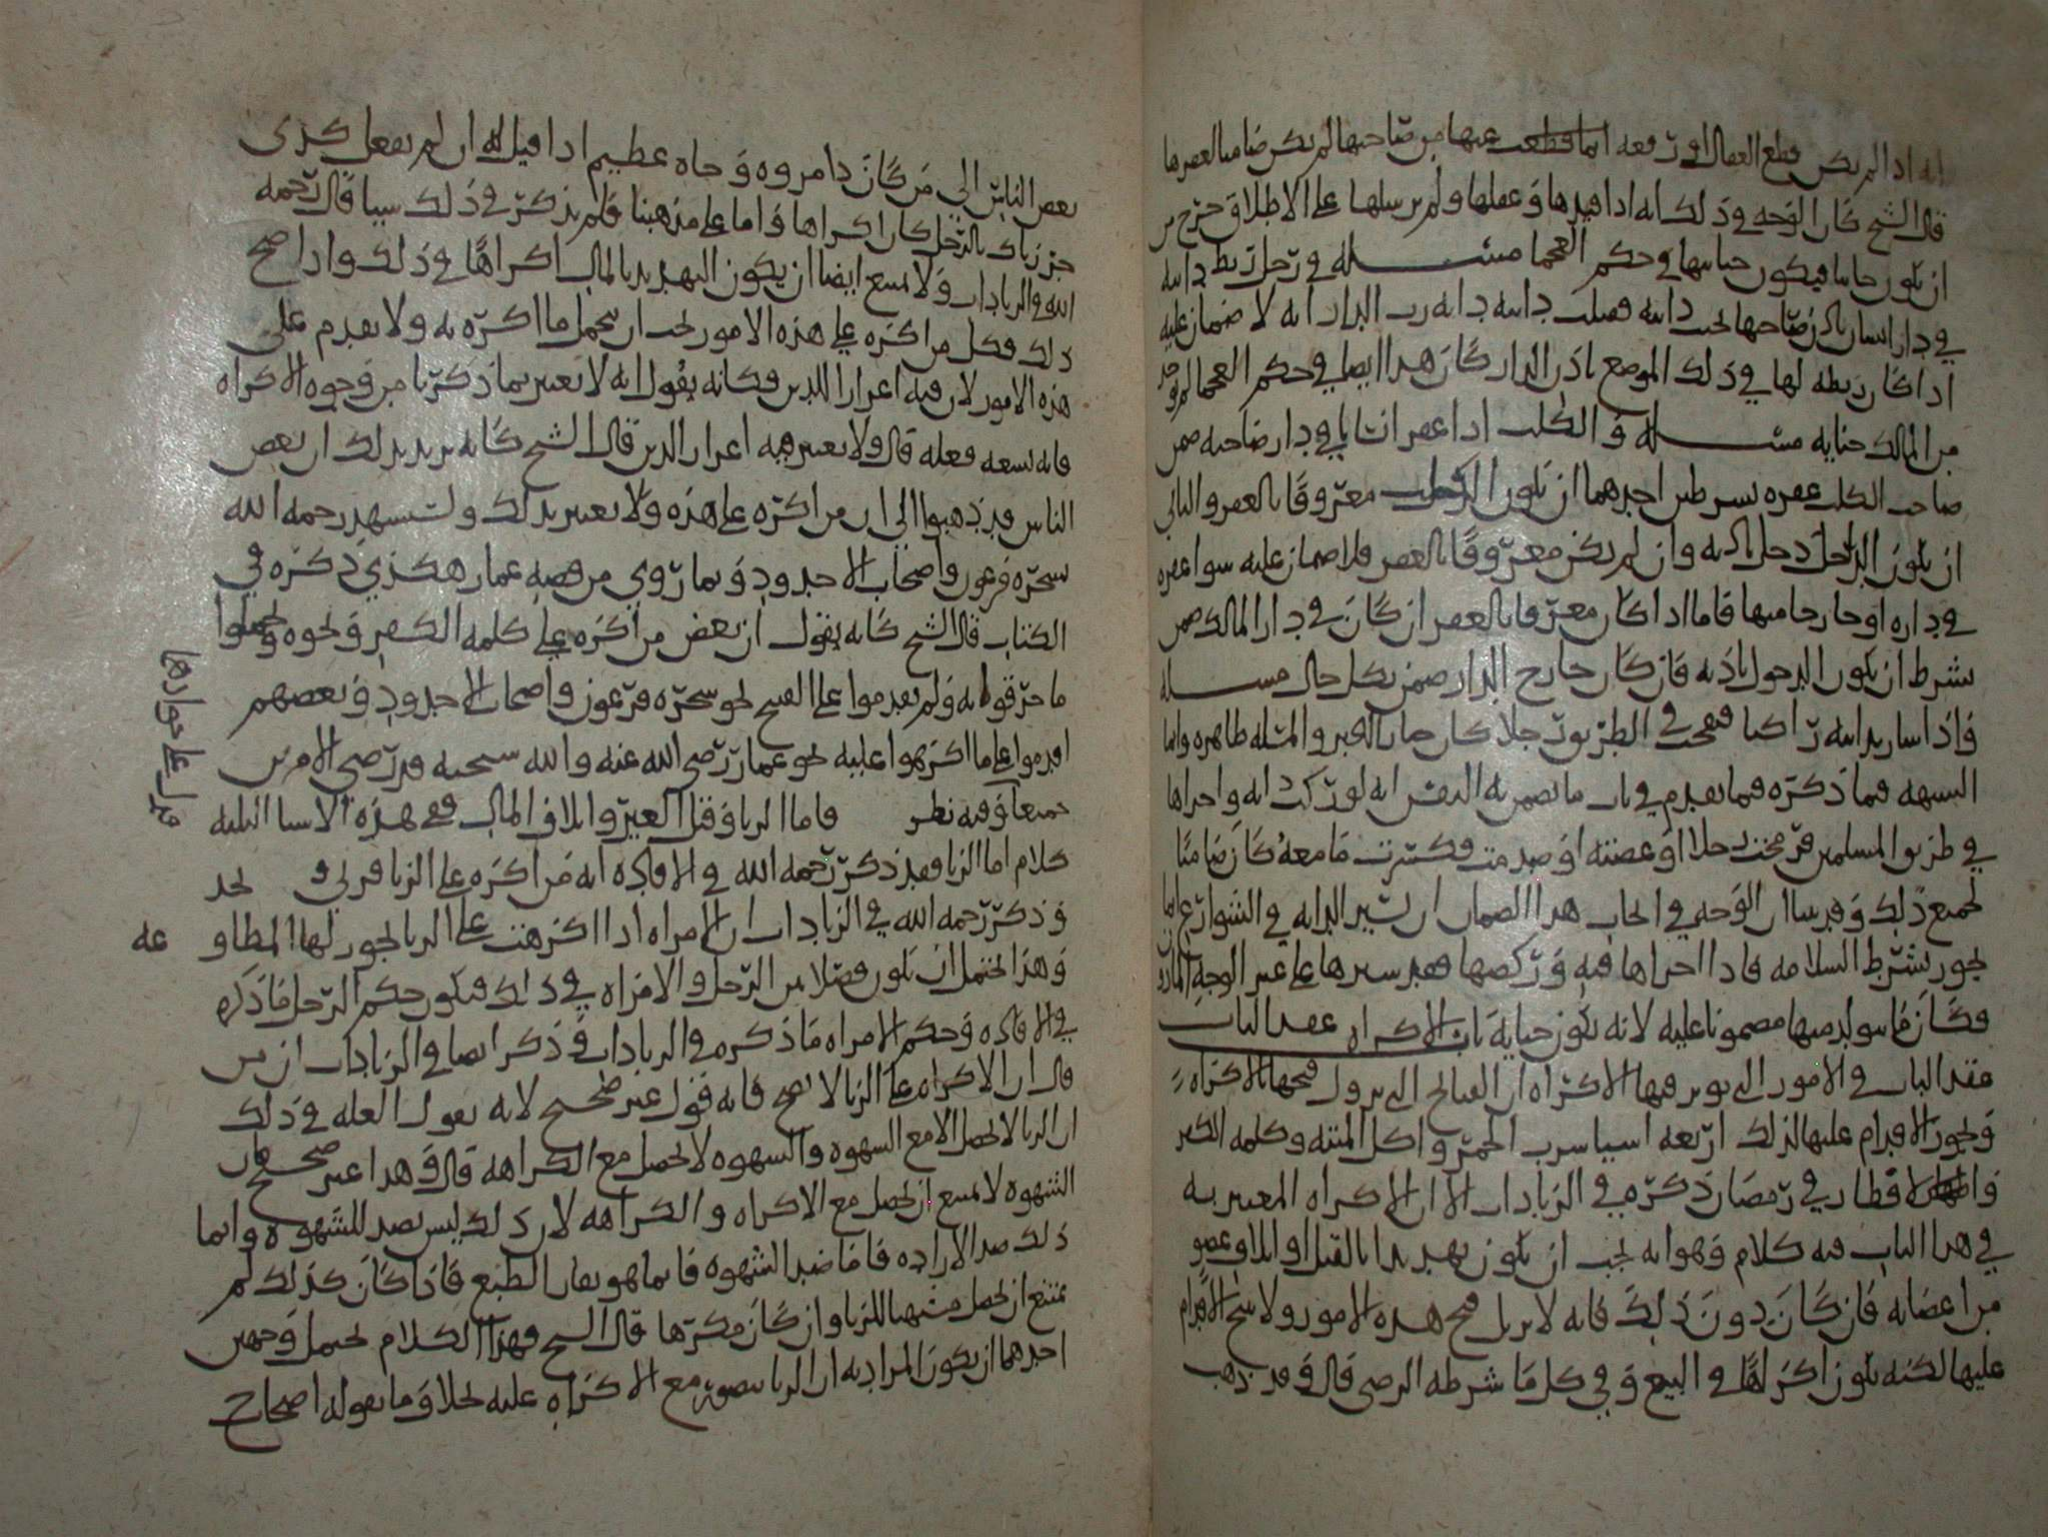 انه اذا لم يكن قطع العقال او رفعه انما قطعت عنها من صاحبها لم يكن ضامنا لعقرها
قال الشيخ كان الوجه في ذلك انه اذا قيدها وعقلها ولم يرسلها على الاطلاق خرج من
ان يكون جانيا فيكون جنايتها في حكم العجما مسئلة في رجل ربط دابته
في دار انسان باذن صاحبها تحت دابته فقتلت دابته دابة رب الدار انه لا ضمان عليه
اذا كان ربطه لها في ذلك الموضع باذن الدار كان هذا ايضا في حكم العجما لم توجد
من المالك جناية مسئلة والكلب اذا عقر انسانا في دار صاحبه ضمن
صاحب الكلب عقره بشرطين احدهما ان يكون الكلب معروفا بالعقر والثاني
ان يكون الرجل دخل باذنه وان لم يكن معروفا بالعقر فلا ضمان عليه سوا عقره
في داره او خارجا منها فاما اذا كان معروفا بالعقر ان كان في دار المالك ضمن
بشرط ان يكون الدخول باذنه فان كان خارج الدار ضمن بكل حال مسئلة
واذا سار بدابته راكبا فنفحت في الطريق رجلا كان جار الخبر والمسلة ظاهره وانما
الشبهه فيما ذكره فيما تقدم في باب ما يضمن به النفس انه لو ركب دابة واجراها
في طريق المسلمين فرمحت رجلا او عضته او صدمت فكسرت ما معه كان ضامنا
لجميع ذلك وقد بينا ان الوجه في ايجاب هذا الضمان ان تسيير الدابه في الشوارع انما
يجوز بشرط السلامه فاذا اجراها فيه وركضها فقد سيرها على غير الوجه الماذون
فكان ما تولد منها مضمونا عليه لانه يكون جناية باب الاكراه عقد الباب
عقد الباب في الامور التي يوثر فيها الاكراه ان القبايح التي يزول قبحها بالاكراه
ويجوز الاقدام عليها لذلك اربعه اشيا شرب الخمر واكل الميتة وكلمه الكفر
والافطار في رمضان ذكره في الزيادات الا ان الاكراه المعتبر به
في هذا الباب فيه كلام وهو انه يجب ان يكون تهديدا بالقتل او اتلاف عضو
من اعضائه فان كان دون ذلك فانه لا يزيل قبح هذه الامور ولا يبيح الاقدام
عليها لكنه يكون اكراها في البيع وفي كل ما شرطه الرضى قال وقد ذهب
بعض الناس الى من كان ذا مروه وجاه عظيم اذا قيل له ان لم تفعل كذى
جززناك بالرجل كان اكراها واما على مذهبنا فلم يذكر في ذلك شيا قال رحمه
الله في الزيادات ولا يمتنع ايضا ان يكون التهديد بالمال اكراها في ذلك واذا صح
ذلك فكل من اكره على هذه الامور يجب ان يتحمل ما اكره به ولا يقدم على
هذه الامور لان فيه اعزارا للدين فكانه يقول انه لا يعتبر بما ذكرنا من وجوه الاكراه
فانه يسعه فعله قال ولا يعتبر فيه اعزار الدين قال الشيخ كانه يريد بذلك ان بعض
الناس قد ذهبوا الى ان من اكره على هذه ولا يعتبر بذلك وليستشهد رحمه الله
بسحره فرعون واصحاب الاخدود وبما روي من قصه عمار هكذي ذكره في
الكتاب قال الشيخ كانه يقول ان بعض من اكره على كلمه الكفر ونحوه وتحملوا
ما خوفوا به ولم يقدموا على القبيح نحو سحره فرعون واصحاب الاخدود وبعضهم
اقدموا على ما اكرهوا عليه نحو عمار رضي الله عنه والله سبحنه قد رضي الامرين
جميعا وفيه نظر فاما الزنا وقتل الغير واتلاف المال ففي هذه الاشيا الثلثه
كلام اما الزنا فقد ذكر رحمه الله في الافاده انه من اكره على الزنا فزنى يحد
وذكر رحمه الله في الزيادات ان الامراه اذا اكرهت على الزنا يجوز لها المطاو عه
وهذا يحتمل ان يكون فصلا بين الرجل والامراه في ذلك فيكون حكم الرجل ما ذكره
في الافاده وحكم الامراه ما ذكره في الزيادات وذكر ايضا في الزيادات ان من
قال ان الاكراه على الزنا لا يصح فانه قول غير صحيح لانه يقول العله في ذلك
ان الزنا لا يحصل الا مع الشهوه والشهوه لا تحصل مع الكراهه قال وهذا غير صحيح فان
الشهوه لا يمتنع ان تحصل مع الاكراه والكراهه لان ذلك ليس بضد للشهوه وانما
ذلك ضد الاراده فاما ضد الشهوه فانما هو نفار الطبع فاذا كان كذلك لم
يمتنع ان يحصل مشتهيا للزنا وان كان مكرها قال الشيخ فهذا الكلام يحتمل وجهين
احدهما ان يكون المراد به ان الزنا يتصور مع الاكراه عليه بخلاف ما يقوله اصحاب ح
يدل على جوازها